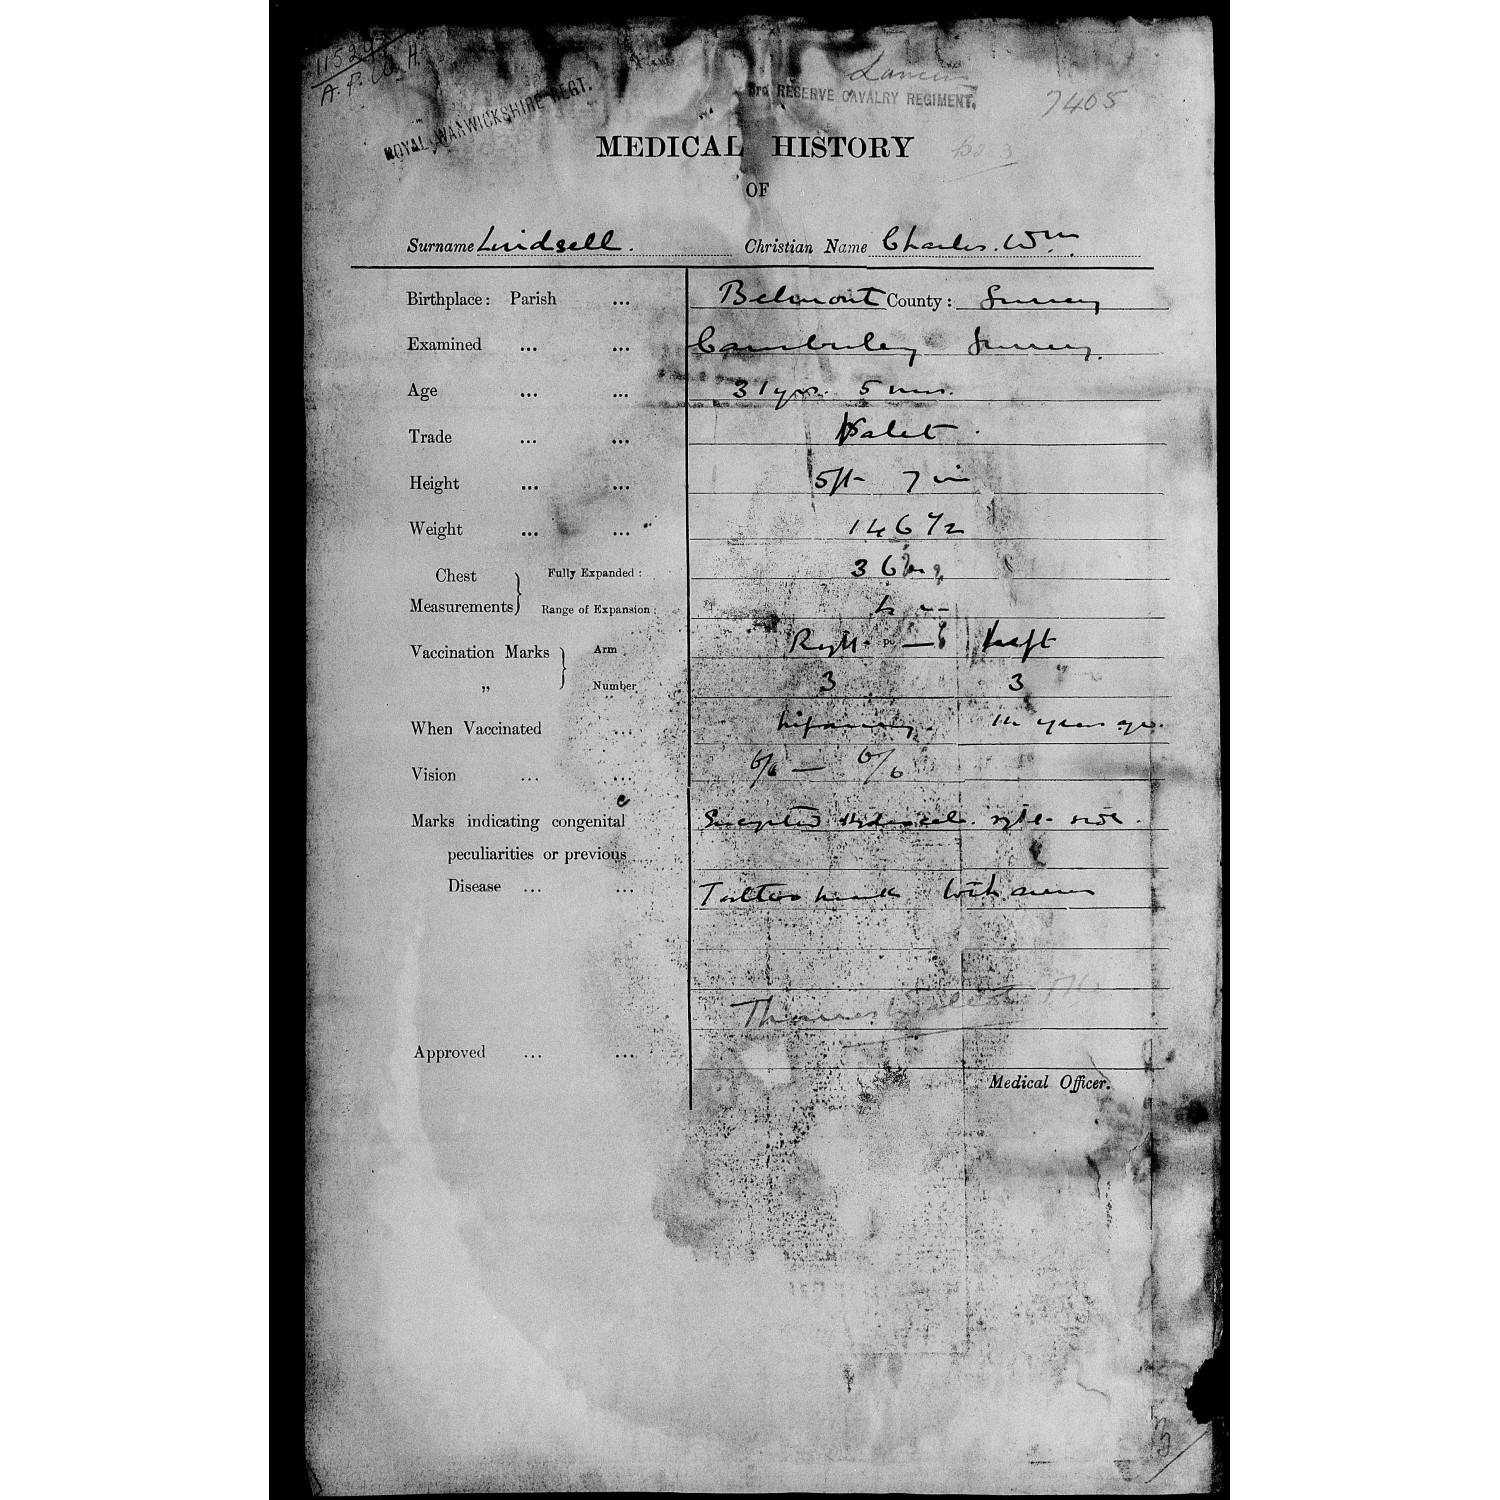 A.F.
ROYAL WARWICKSHIRE REGT.
3rd RESERVE CAVALRY REGIMENT.
7405
MEDICAL HISTORY
OF
Surname Lindsell. Christian Name Charles. Wm.
Birthplace: Parish ... Belmont County: Surrey
Examined ... ... Camberley Surrey.
Age ... ... 31 yrs. 5 mos.
Trade ... ... Valet.
Height ... ... 5ft 7 in
Weight ... ... 146 1/2
Chest Fully Expanded: 36
Measurements Range of Expansion:
Vaccination Marks Arm Right Left
„ Number 3 3
When Vaccinated ... Infancy. 14 years ago.
Vision ... ... 6/6 — 6/6
Marks indicating congenital
peculiarities or previous
Disease ... ... Tattoo marks both arms
Thomas
Approved ... ...
Medical Officer.